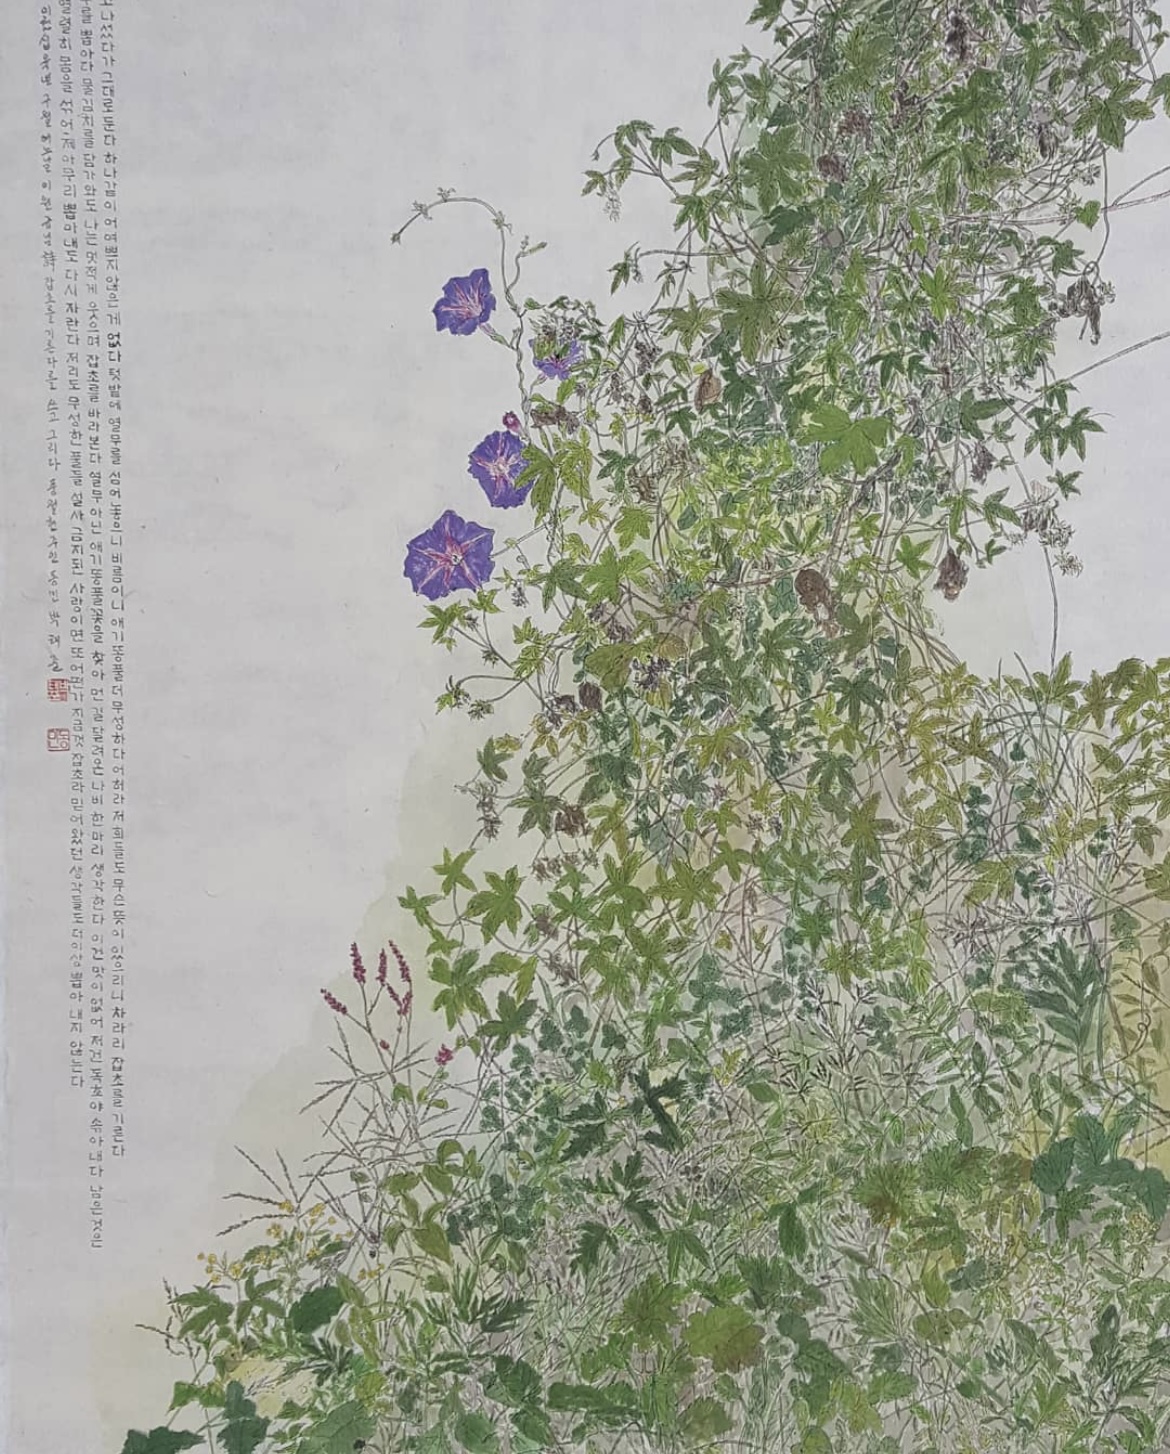 나섰다가 그대로 둔다 하나같이 어여쁘지 않은 게 없다 텃밭에 열무를 심어 놓으니 비름이니 애기똥풀 더 무성하다 어허라 저희들도 무슨 뜻이 있으리니 차라리 잡초를 기른다
를 뽑아다 물김치를 담가와도 나는 멋적게 웃으며 잡초를 바라본다 열무 아닌 애기똥풀꽃을 찾아 먼 길 달려온 나비 한마리 생각한다 이건 맛이 없어 저건 독초야 솎아내다 남은 것은
열렬히 몸을 섞어 제아무리 뽑아내도 다시 자란다 저리도 무성한 풀들 설사 금지된 사랑이면 또 어떤가 지금껏 잡초라 믿어왔던 생각들도 더이상 뽑아 내지 않는다
구월 어느날 이원규님 詩 잡초를 기르다를 쓰고 그리다 주인 동인 박태준